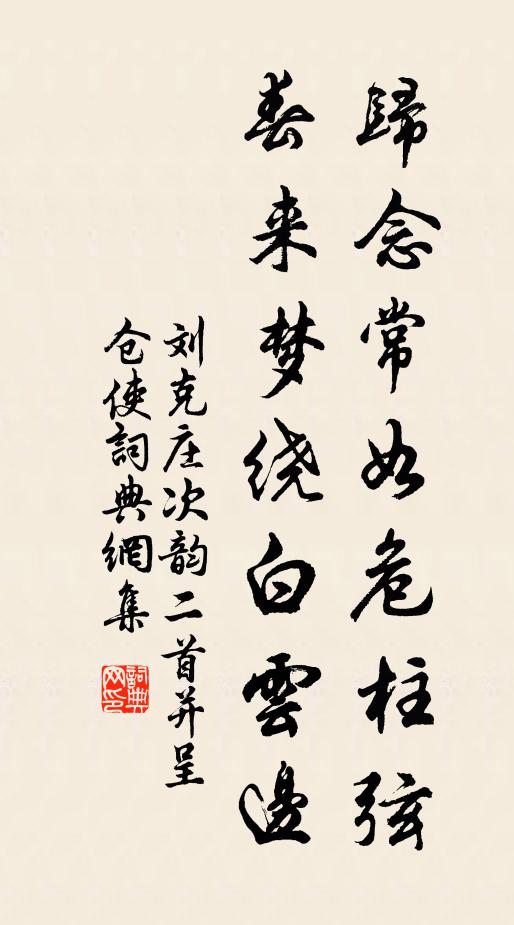 歸念常如危柱弦
春来梦绕白雲邊
刘克庄次韵二首并呈
仓使詞典網集
詞典
网印